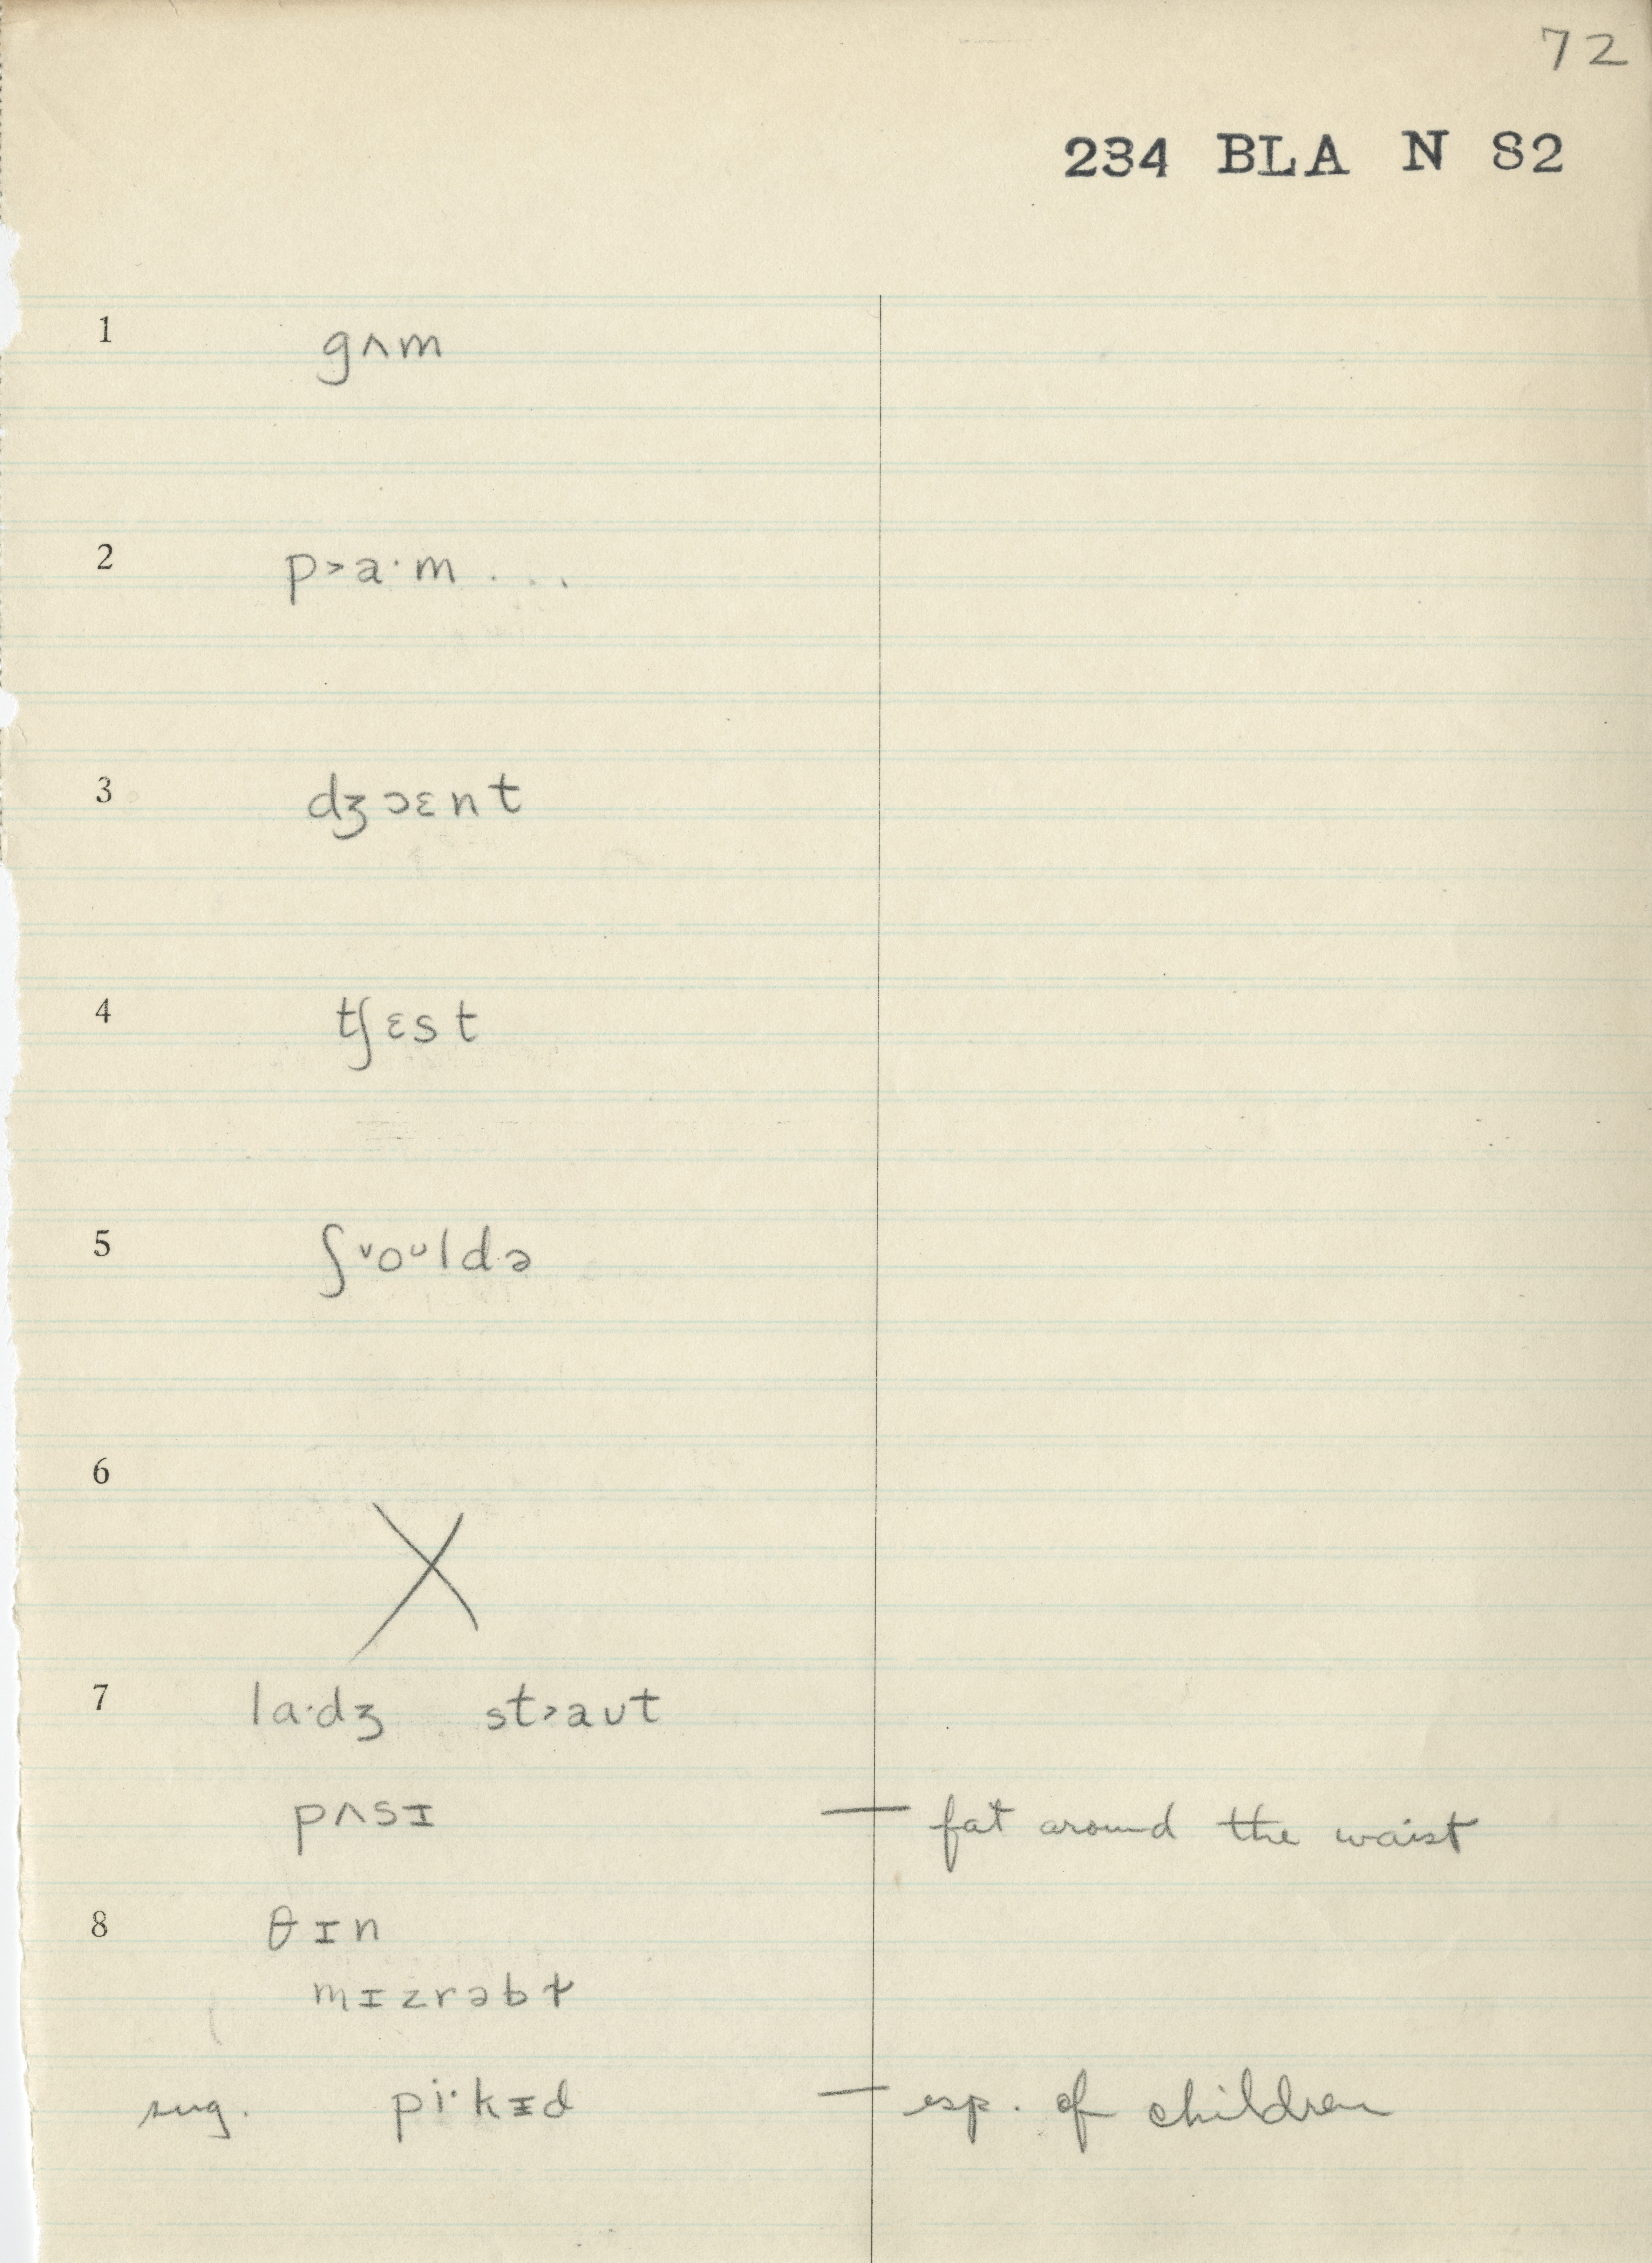 72
234 BLA N 82
1 gʌm
2 p˃a·m ....
3 dʒɔɛnt
4 tʃɛst
5 ʃ˅oᴜldə
6 X
7 la·dʒ st˃aᴜt
pʌsɪ — fat around the waist
8 θɪn
mɪzrəbɫ
sug. pi·kɪd — esp. of children